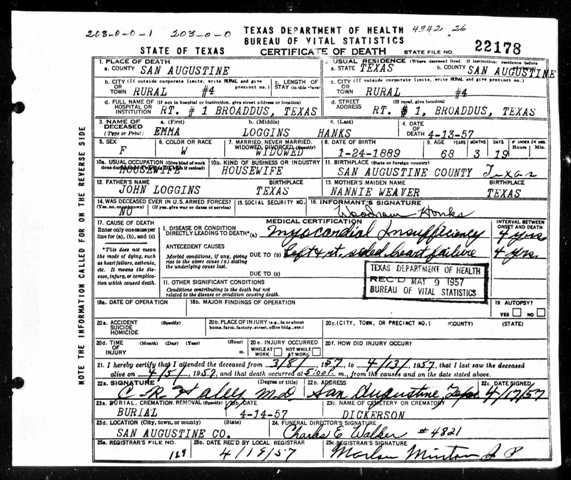 208-0-0-1 203-0-0 TEXAS DEPARTMENT OF HEALTH 4942-26
BUREAU OF VITAL STATISTICS
STATE OF TEXAS CERTIFICATE OF DEATH STATE FILE NO. 22178
1. PLACE OF DEATH 2. USUAL RESIDENCE (Where deceased lived. If institution, residence before admission)
a. COUNTY SAN AUGUSTINE a. STATE TEXAS b. COUNTY SAN AUGUSTINE
b. CITY (If outside corporate limits, write RURAL and give precinct no.) c. LENGTH OF STAY (in this place) c. CITY (If outside corporate limits, write RURAL and give precinct no.)
OR TOWN RURAL #4 OR TOWN RURAL #4
d. FULL NAME OF (If not in hospital or institution, give street address or location) d. STREET (If rural, give location)
HOSPITAL OR INSTITUTION RT. # 1 BROADDUS, TEXAS ADDRESS RT. # 1, BROADDUS, TEXAS
3. NAME OF DECEASED (Type or Print) a. (First) b. (Middle) c. (Last) 4. DATE OF DEATH
EMMA LOGGINS HANKS 4-13-57
5. SEX 6. COLOR OR RACE 7. MARRIED, NEVER MARRIED, WIDOWED, DIVORCED (Specify) 8. DATE OF BIRTH 9. AGE YEARS MONTHS DAYS IF UNDER 24 HRS. Hours Min.
F W WIDOWED 1-24-1889 68 3 19
10a. USUAL OCCUPATION (Give kind of work 10b. KIND OF BUSINESS OR INDUSTRY 11. BIRTHPLACE (State or foreign country)
HOUSEWIFE HOUSEWIFE SAN AUGUSTINE COUNTY Texas
12. FATHER'S NAME BIRTHPLACE 13. MOTHER'S MAIDEN NAME BIRTHPLACE
JOHN LOGGINS TEXAS NANNIE WEAVER TEXAS
14. WAS DECEASED EVER IN U.S. ARMED FORCES? 15. SOCIAL SECURITY NO. 16. INFORMANT'S SIGNATURE
(Yes, no, or unknown) (If yes, give war or dates of service)
NO Woodrow Hanks
17. CAUSE OF DEATH MEDICAL CERTIFICATION INTERVAL BETWEEN ONSET AND DEATH
Enter only one cause per line for (a), (b), and (c)
I. DISEASE OR CONDITION DIRECTLY LEADING TO DEATH* (a) Myocardial Insufficiency 4 yrs
ANTECEDENT CAUSES DUE TO (b) Left & rt. sided heart failure 4 yrs.
*This does not mean the mode of dying, such as heart failure, asthenia, etc. It means the disease, injury, or complication which caused death.
Morbid conditions, if any, giving rise to the above cause (a) stating the underlying cause last.
DUE TO (c)
TEXAS DEPARTMENT OF HEALTH
REC'D MAY 9 1957
BUREAU OF VITAL STATISTICS
II. OTHER SIGNIFICANT CONDITIONS
Conditions contributing to the death but not related to the disease or condition causing death.
18a. DATE OF OPERATION 18b. MAJOR FINDINGS OF OPERATION 19. AUTOPSY?
YES NO
20a. ACCIDENT SUICIDE HOMICIDE (Specify) 20b. PLACE OF INJURY (e.g., in or about home, farm, factory, street, office bldg., etc.) 20c. (CITY, TOWN, OR PRECINCT NO.) (COUNTY) (STATE)
20d. TIME OF INJURY (Month) (Day) (Year) (Hour) 20e. INJURY OCCURRED WHILE AT WORK NOT WHILE AT WORK 20f. HOW DID INJURY OCCUR?
21. I hereby certify that I attended the deceased from 3/8/ 1957, to 4/13/ 1957, that I last saw the deceased
alive on 4/5/ 1957, and that death occurred at 5:00 m., from the causes and on the date stated above.
22a. SIGNATURE (Degree or title) 22b. ADDRESS 22c. DATE SIGNED
M.D. San Augustine Texas 4/17/57
23a. BURIAL, CREMATION, REMOVAL (Specify) 23b. DATE 23c. NAME OF CEMETERY OR CREMATORY
BURIAL 4-14-57 DICKERSON
23d. LOCATION (City, town, or county) (State) 24. FUNERAL DIRECTOR'S SIGNATURE
SAN AUGUSTINE CO. Charles E. Walker #4821
25a. REGISTRAR'S FILE NO. 25b. DATE REC'D BY LOCAL REGISTRAR 25c. REGISTRAR'S SIGNATURE
129 4/18/57 Marlow Minton J P
NOTE THE INFORMATION CALLED FOR ON THE REVERSE SIDE